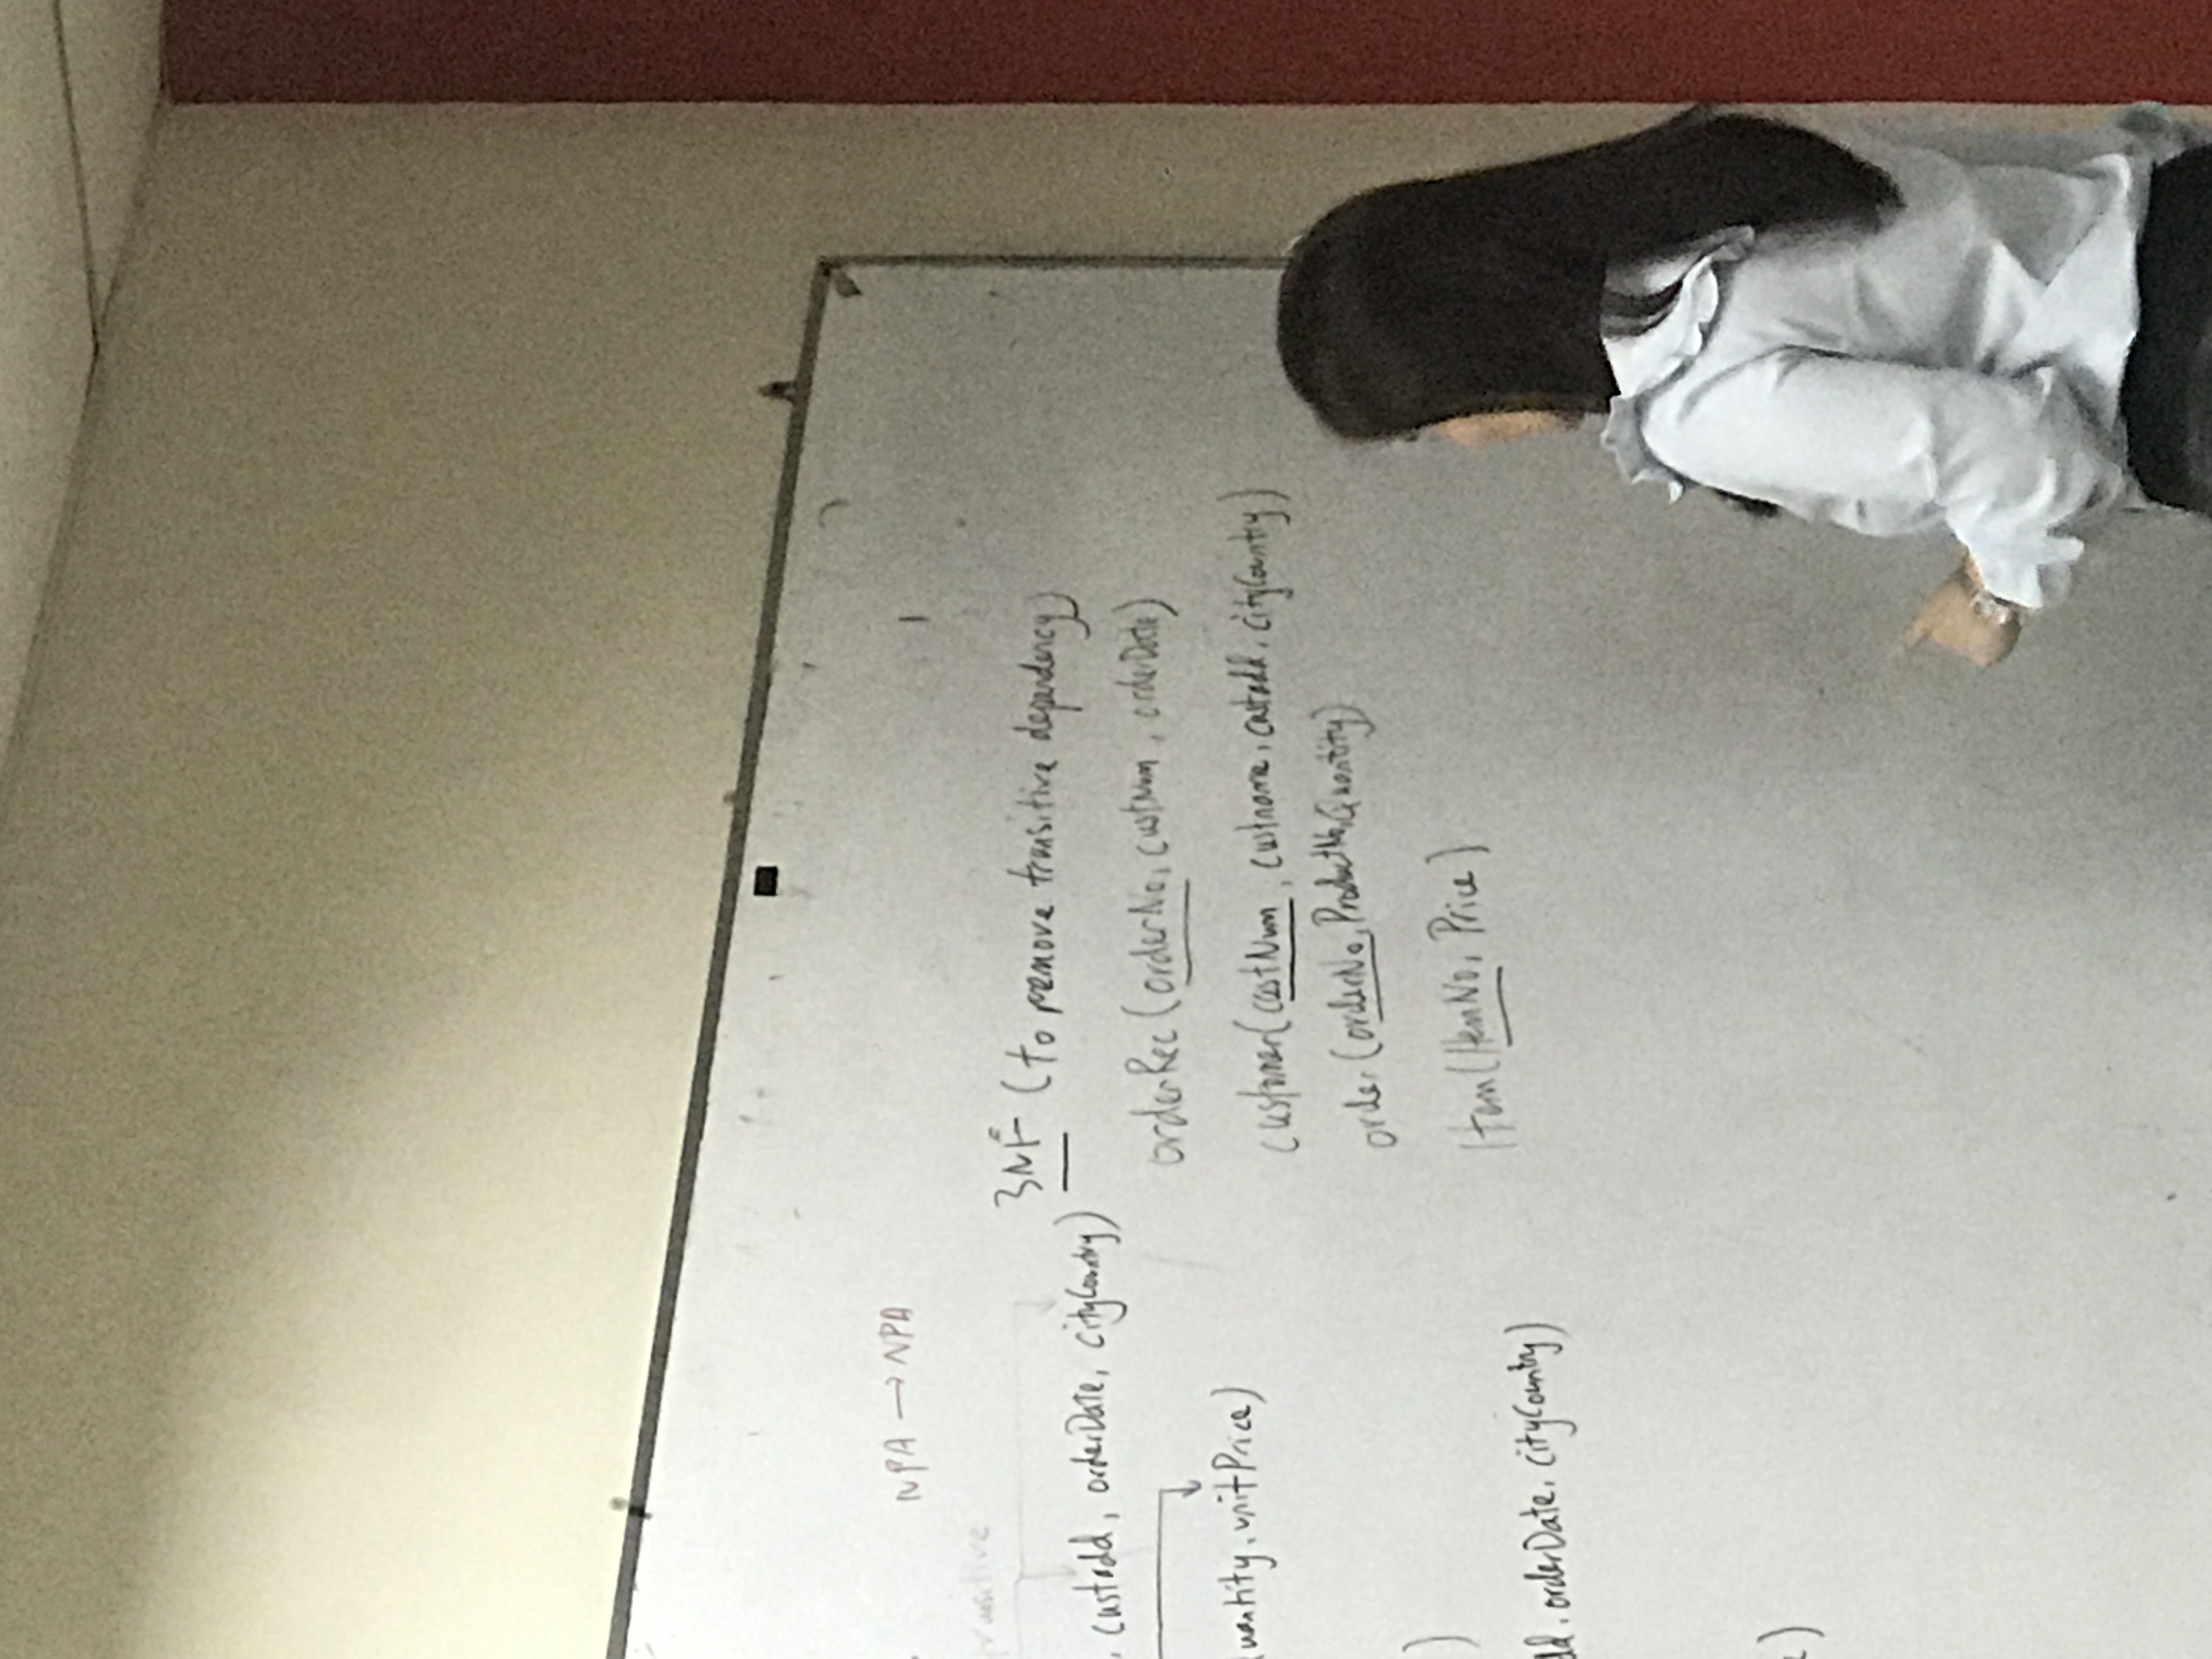 NPA → NPA
transitive
, custadd, orderDate, cityCountry)
Quantity, unitPrice)
)
dd, orderDate, cityCountry)
e)
3NF (to remove transitive dependency)
orderRec (orderNo, custNum, orderDate)
customer(custNum, custname, custadd, cityCountry)
order (orderNo, ProductNo, Quantity)
Item (ItemNo, Price)